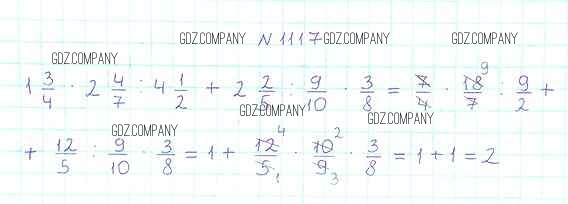 GDZ.COMPANY N 1117 GDZ.COMPANY GDZ.COMPANY
GDZ.COMPANY
1 3/4 · 2 4/7 : 4 1/2 + 2 2/5 : 9/10 · 3/8 = 7/4 · 18/7 9 : 9/2 +
GDZ.COMPANY GDZ.COMPANY GDZ.COMPANY
+ 12/5 : 9/10 · 3/8 = 1 + 12 4/5 1 · 10 2/9 3 · 3/8 = 1 + 1 = 2